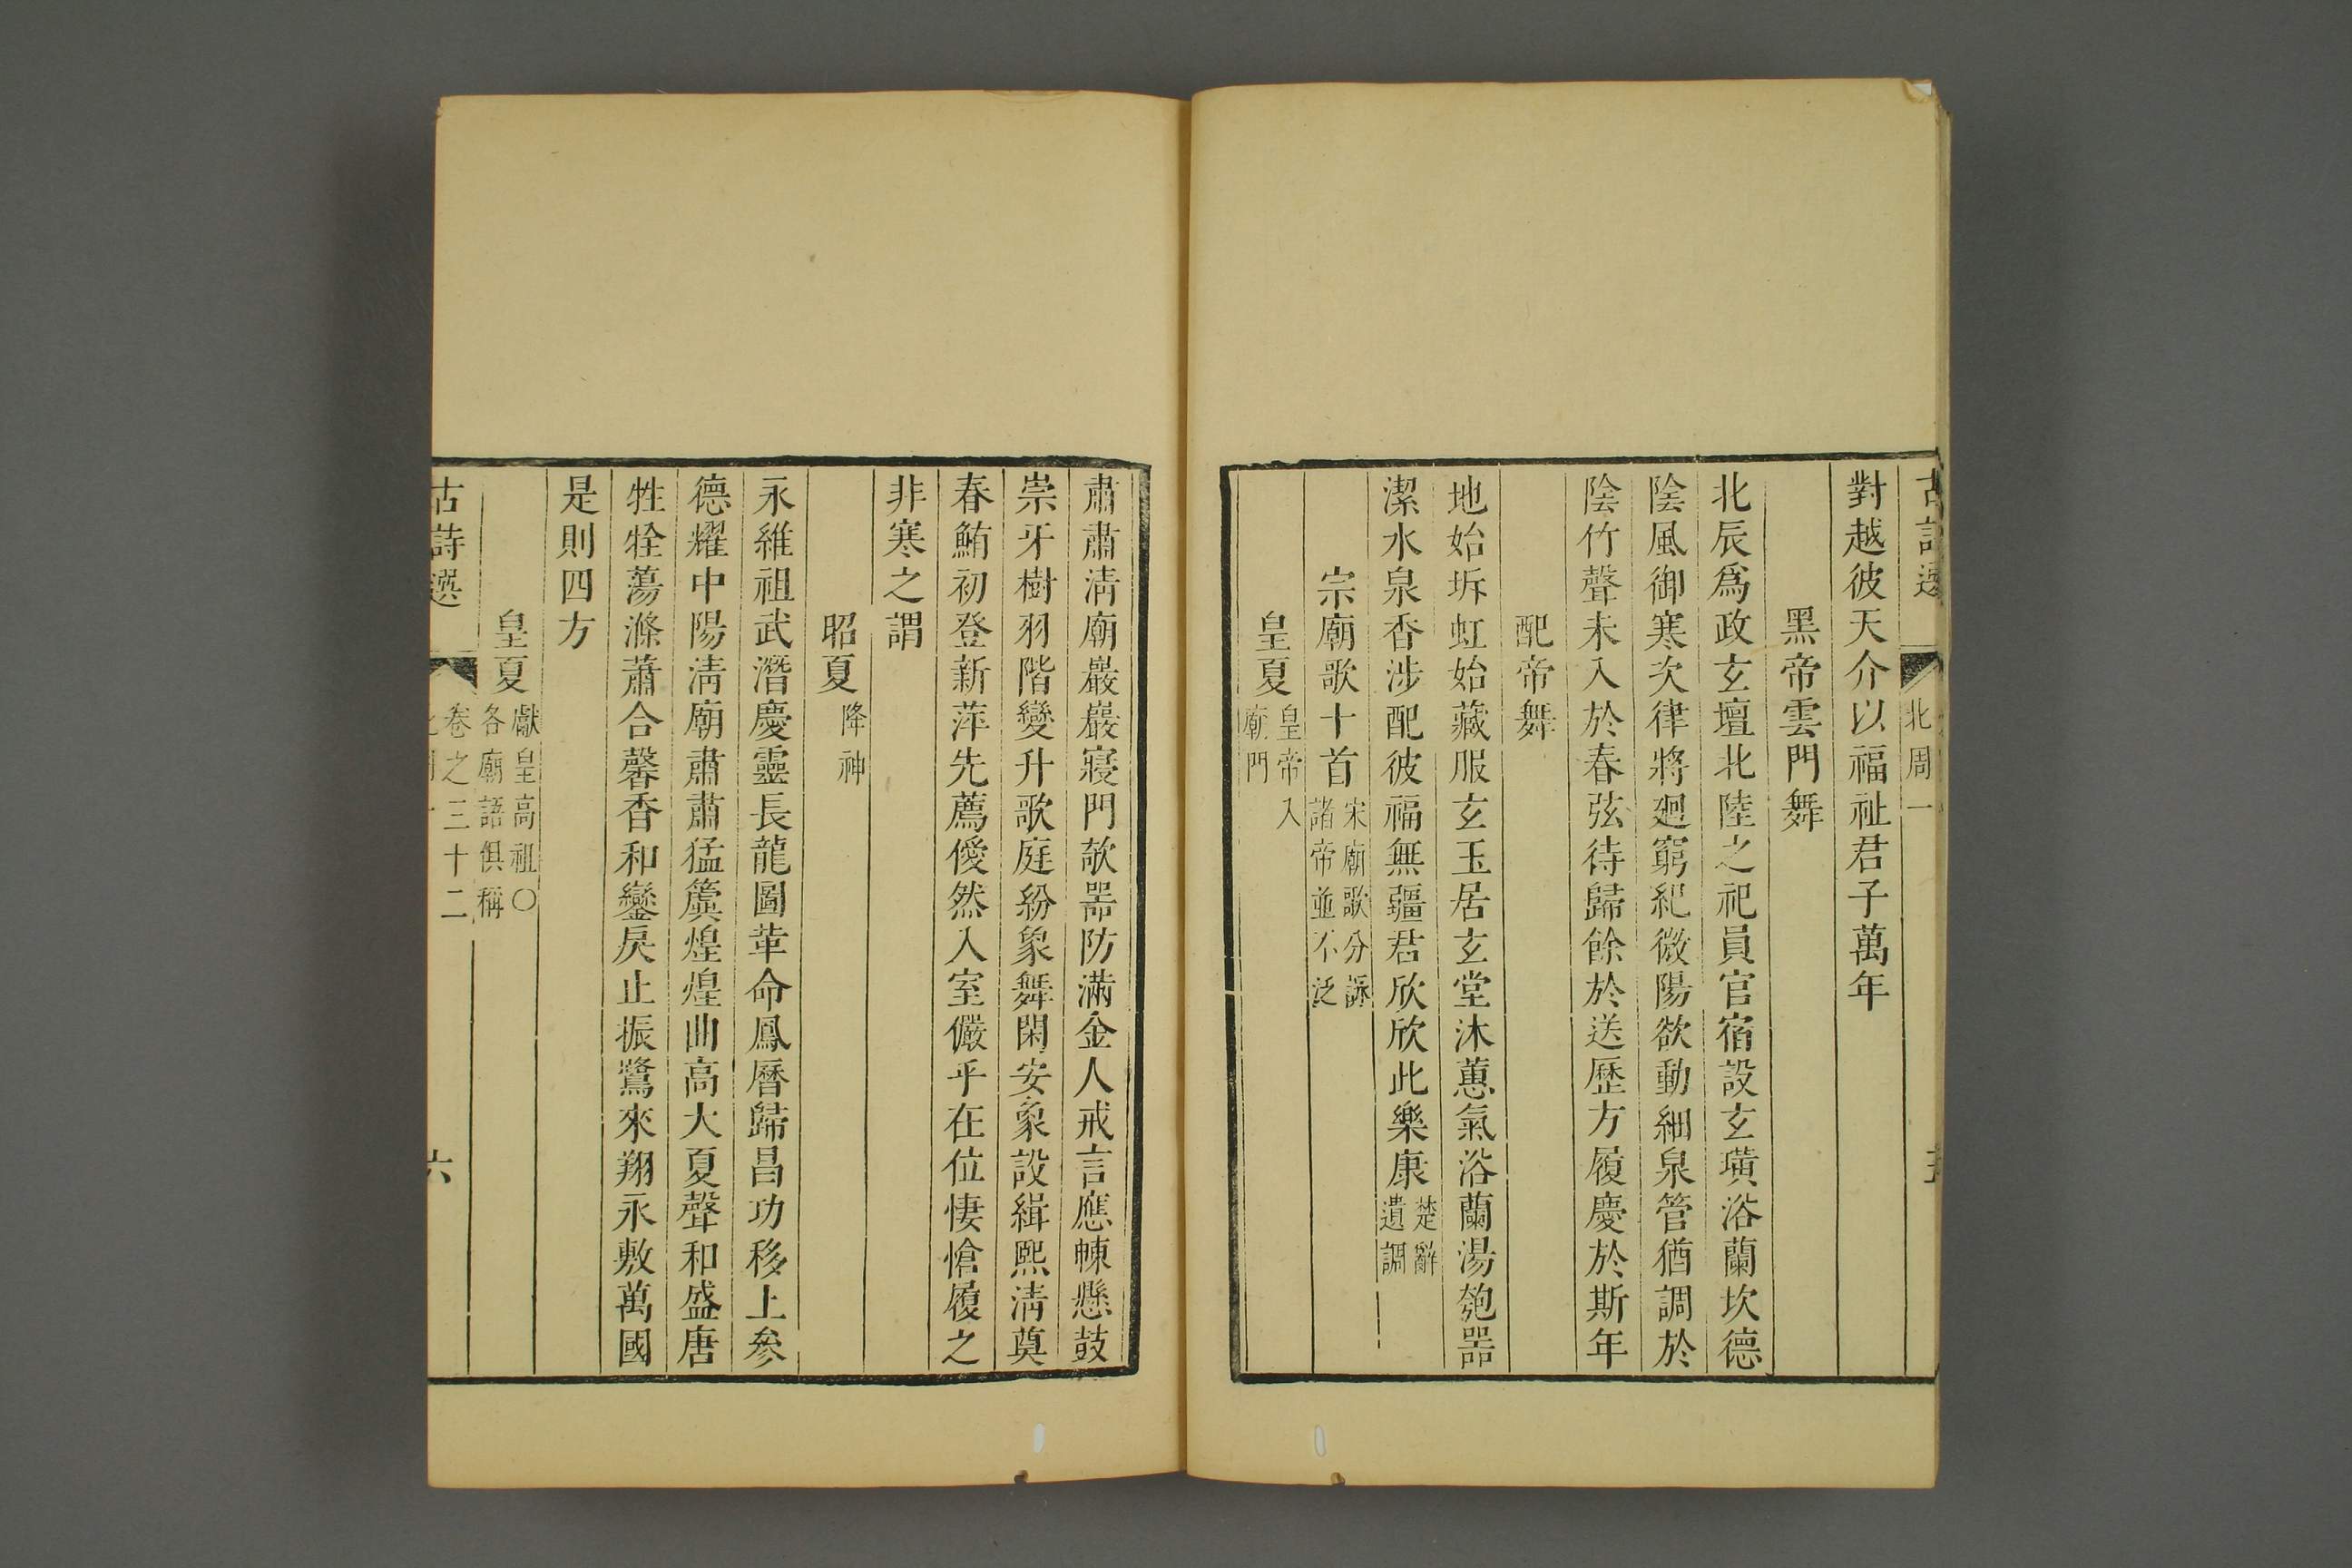 古詩選 北周一
對越彼天介以福祉君子萬年
黑帝雲門舞
北辰爲政玄壇北陸之祀員官宿設玄璜浴蘭坎德
陰風御寒次律將迴窮紀微陽欲動細泉管猶調於
陰竹聲未入於春弦待歸餘於送歷方履慶於斯年
配帝舞
地始坼虹始藏服玄玉居玄堂沐蕙氣浴蘭湯匏器
潔水泉香涉配彼福無疆君欣欣此樂康 楚辭遺調
宗廟歌十首 宋廟歌分詠諸帝並不泛
皇夏 皇帝入廟門
肅肅清廟巖巖寢門欹器防滿金人戒言應朄懸鼓
崇牙樹羽階變升歌庭紛象舞閑安象設緝熙清奠
春鮪初登新萍先薦僾然入室儼乎在位悽愴履之
非寒之謂
昭夏 降神
永維祖武潛慶靈長龍圖革命鳳曆歸昌功移上參
德耀中陽清廟肅肅猛簴煌煌曲高大夏聲和盛唐
牲牷蕩滌蕭合馨香和鑾戾止振鷺來翔永敷萬國
是則四方
皇夏 獻皇高祖○各廟語俱稱
古詩選 卷之三十二 六